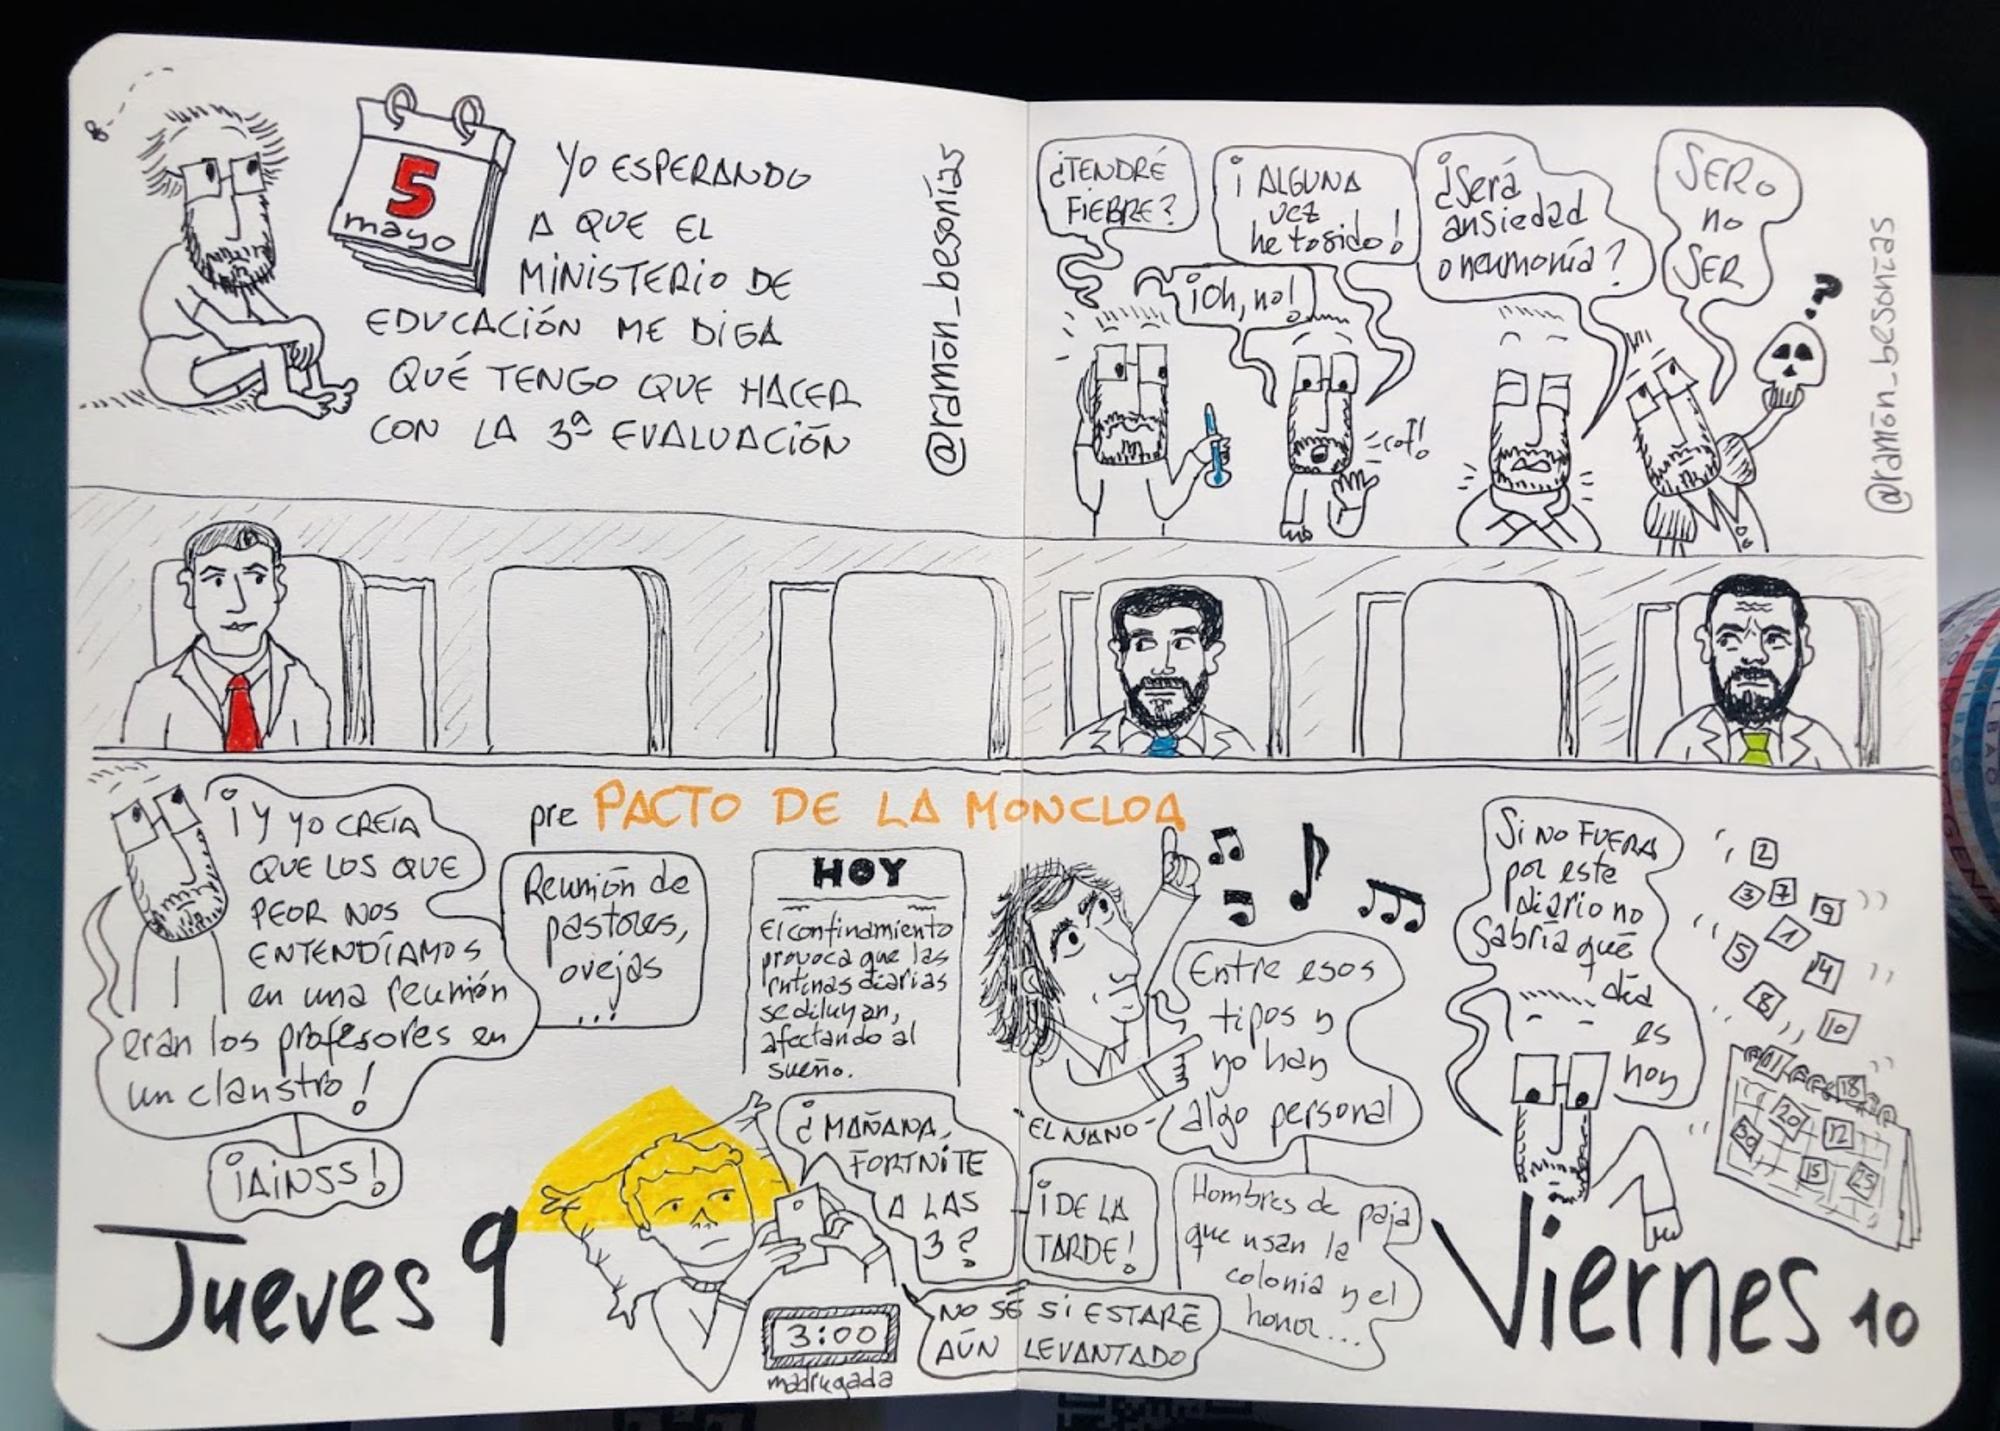 5
mayo
YO ESPERANDO
A QUE EL
MINISTERIO DE
EDUCACIÓN ME DIGA
QUÉ TENGO QUE HACER
CON LA 3ª EVALUACIÓN
@ramón_besonías
¿TENDRÉ
FIEBRE?
¡Oh, no!
¡ALGUNA
vez
he tosido!
cof!
¿Será
ansiedad
o neumonía?
SER o
no
SER
?
@ramón_besonías
¡Y YO CREÍA
QUE LOS QUE
PEOR NOS
ENTENDÍAMOS
en una reunión
eran los profesores en
un claustro!
¡AINSS!
pre PACTO DE LA MONCLOA
Reunión de
pastores,
ovejas
...
HOY
El confinamiento
provoca que las
rutinas diarias
se diluyan,
afectando al
sueño.
¿MAÑANA,
FORTNITE
A LAS
3?
¡DE LA
TARDE!
NO SÉ SI ESTARÉ
AÚN LEVANTADO
3:00
madrugada
Jueves 9
"EL NANO"
Entre esos
tipos y
yo hay
algo personal
Hombres de paja
que usan la
colonia y el
honor...
Si NO FUERA
por este
diario no
Sabría qué
día
es
hoy
2
3 7
9
1
5
4
8
10
11
18
20
12
30
15
25
Viernes 10